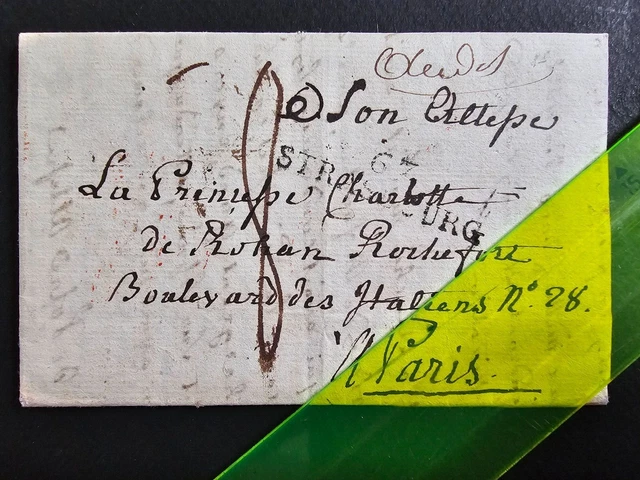 à Son Altesse
67
STRASBOURG
La Princesse Charlotte
de Rohan Rochefort
Boulevard des Italiens N° 28.
à Paris.